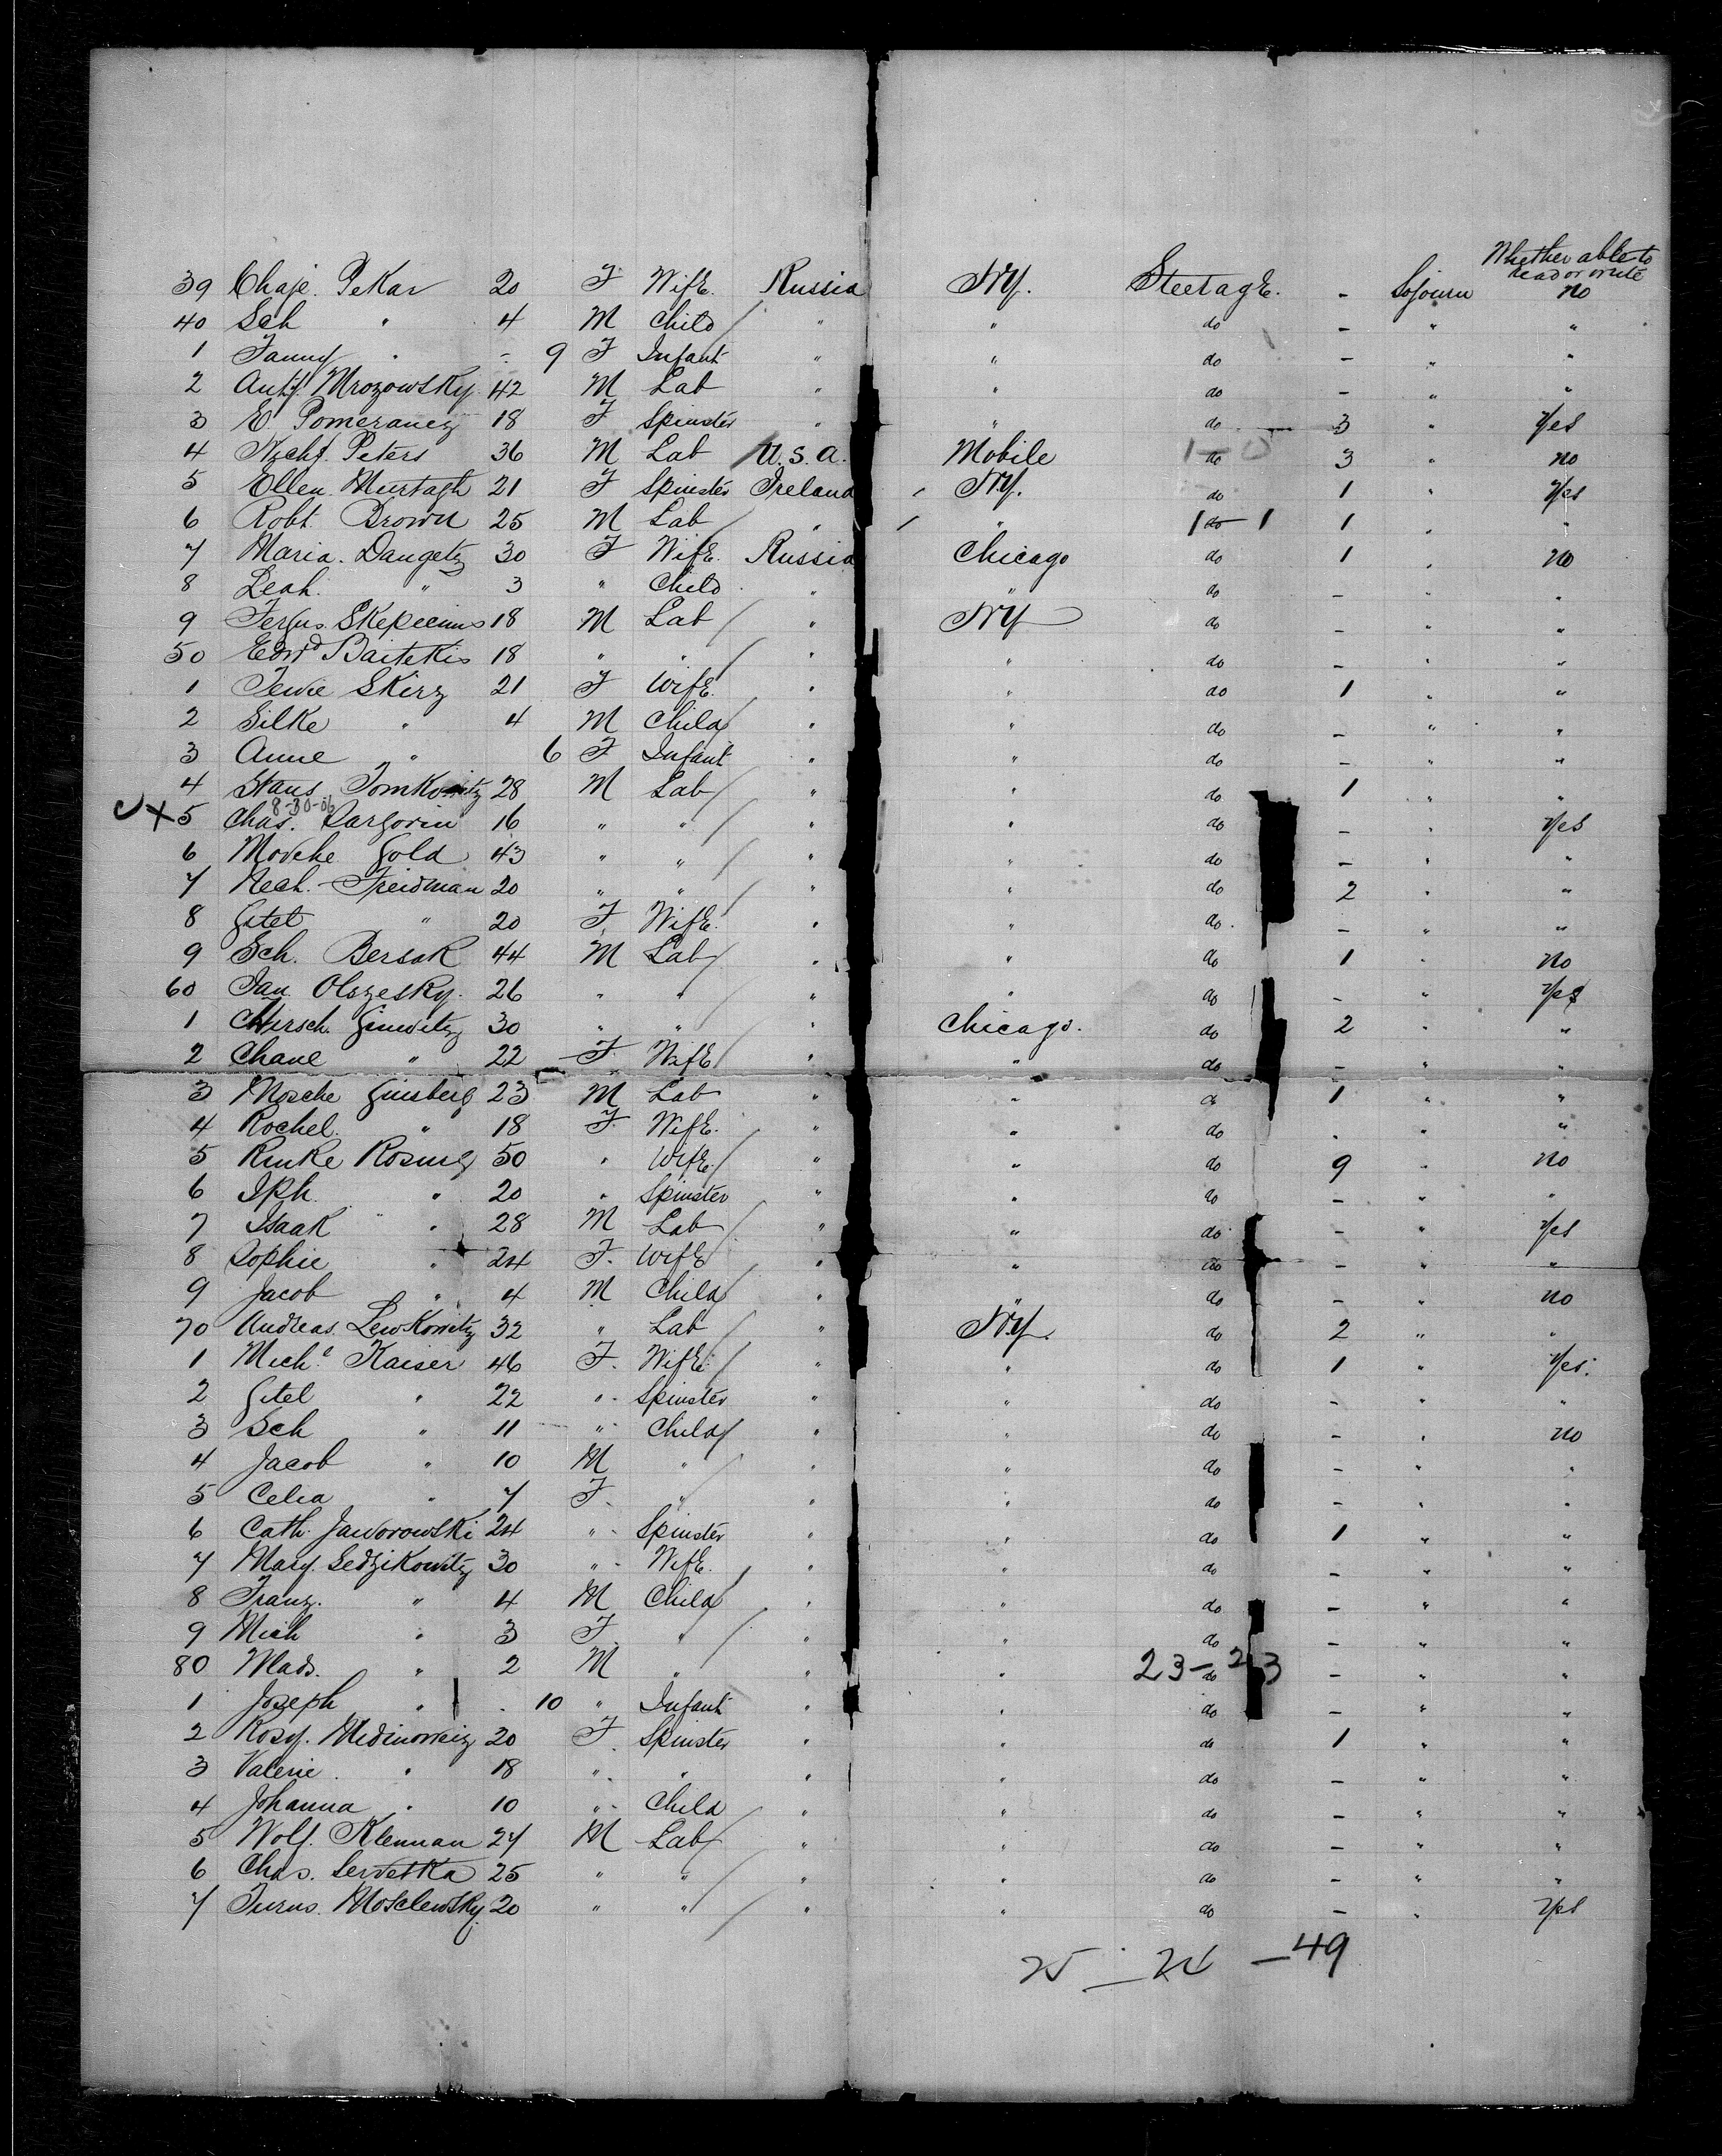 Whether able to
read or write
39 Chaje. Pekar 20 F Wife. Russia NY. Steerage. - Sojourn no
40 Sch " 4 M Child " " do - " "
1 Fanny " - 9 F Infant " " do - " "
2 Anty. Mrozowsky 42 M Lab " " do - " "
3 E. Pomeranez 18 F Spinster " " do 3 " Yes
4 Peters 36 M Lab U.S.A. Mobile 1-0 do 3 " no
5 Ellen Murtagh 21 F Spinster Ireland NY. do 1 " Yes
6 Robt. Brown 25 M Lab " " 1 do 1 1 " "
7 Maria. Daugetz 30 F Wife. Russia Chicago do 1 " no
8 Leah. " 3 " Child " " do - " "
9 Fergus. Skepeeins 18 M Lab " NY do - " "
50 Edwd Baitekis 18 " " " " do - " "
1 Tewe Skirz 21 F Wife. " " do 1 " "
2 Silke " 4 M Child " " do - " "
3 Anne " 6 F Infant " " do - " "
4 Stans Tomkowitz 28 M Lab " " do 1 " "
8-30-06
X 5 Chas. Dargovin 16 " " " " do - " Yes
6 Movche Gold 43 " " " " do - " "
7 Neah. Freidman 20 " " " " do 2 " "
8 Gitel " 20 F Wife. " " do. - " "
9 Sch. Bersak 44 M Lab " " do 1 " no
60 Jan Olszesky. 26 " " " " do - " Yes
1 Hirsch. Ginwitz 30 " " " Chicago. do 2 " "
2 Chane " 22 F Wife " " do - " "
3 Mosche Ginsberg 23 M Lab " " do 1 " "
4 Rochel. " 18 F Wife. " " do . " "
5 Rinke Rosing 50 " Wife. " " do 9 " no
6 Iph. " 20 " Spinster " " do - " "
7 Isaak " 28 M Lab " " do - " Yes
8 Sophie " 24 F. Wife " " do - " "
9 Jacob " 4 M Child " " do - " no
70 Andreas. Lewkowitz 32 " Lab " NY. do 2 " "
1 Mich.l Kaiser 46 F. Wife. " " do 1 " Yes.
2 Gitel " 22 " Spinster " " do - " "
3 Sch " 11 " Child " " do - " no
4 Jacob " 10 M " " " do - " "
5 Celia " 7 F. " " " do - " "
6 Cath. Jaworowski 24 " Spinster " " do 1 " "
7 Mary. Sedzikowitz 30 " Wife. " " do - " "
8 Franz. " 4 M Child " " do - " "
9 Mich " 3 F " " " do - " "
80 Wlads. " 2 M " " " 23-23 do - " "
1 Jozeph " . 10 " Infant " " do - " "
2 Rosy. Medinoweiz 20 F Spinster " " do 1 " "
3 Valerie. " 18 " " " " do - " "
4 Johanna " 10 " Child " " do - " "
5 Wolf. Klenman 27 M Lab " " do - " "
6 Chas. Servetka 25 " " " " do - " "
7 Mosclewsky. 20 " " " " do - " Yes
25 - 24 - 49